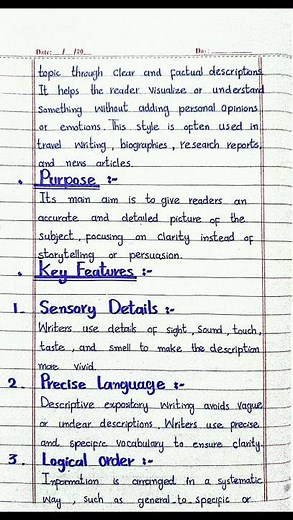 Date: / /20 Day:
topic through clear and factual descriptions.
It helps the reader visualize or understand
something without adding personal opinions
or emotions. This style is often used in
travel writing, biographies, research reports,
and news articles.
• Purpose :-
Its main aim is to give readers an
accurate and detailed picture of the
subject, focusing on clarity instead of
storytelling or persuasion.
• Key Features :-
1. Sensory Details :-
Writers use details of sight, sound, touch,
taste, and smell to make the description
more vivid.
2. Precise Language :-
Descriptive expository writing avoids vague
or unclear descriptions. Writers use precise
and specific vocabulary to ensure clarity.
3. Logical Order :-
Information is arranged in a systematic
way, such as general_to_specific or